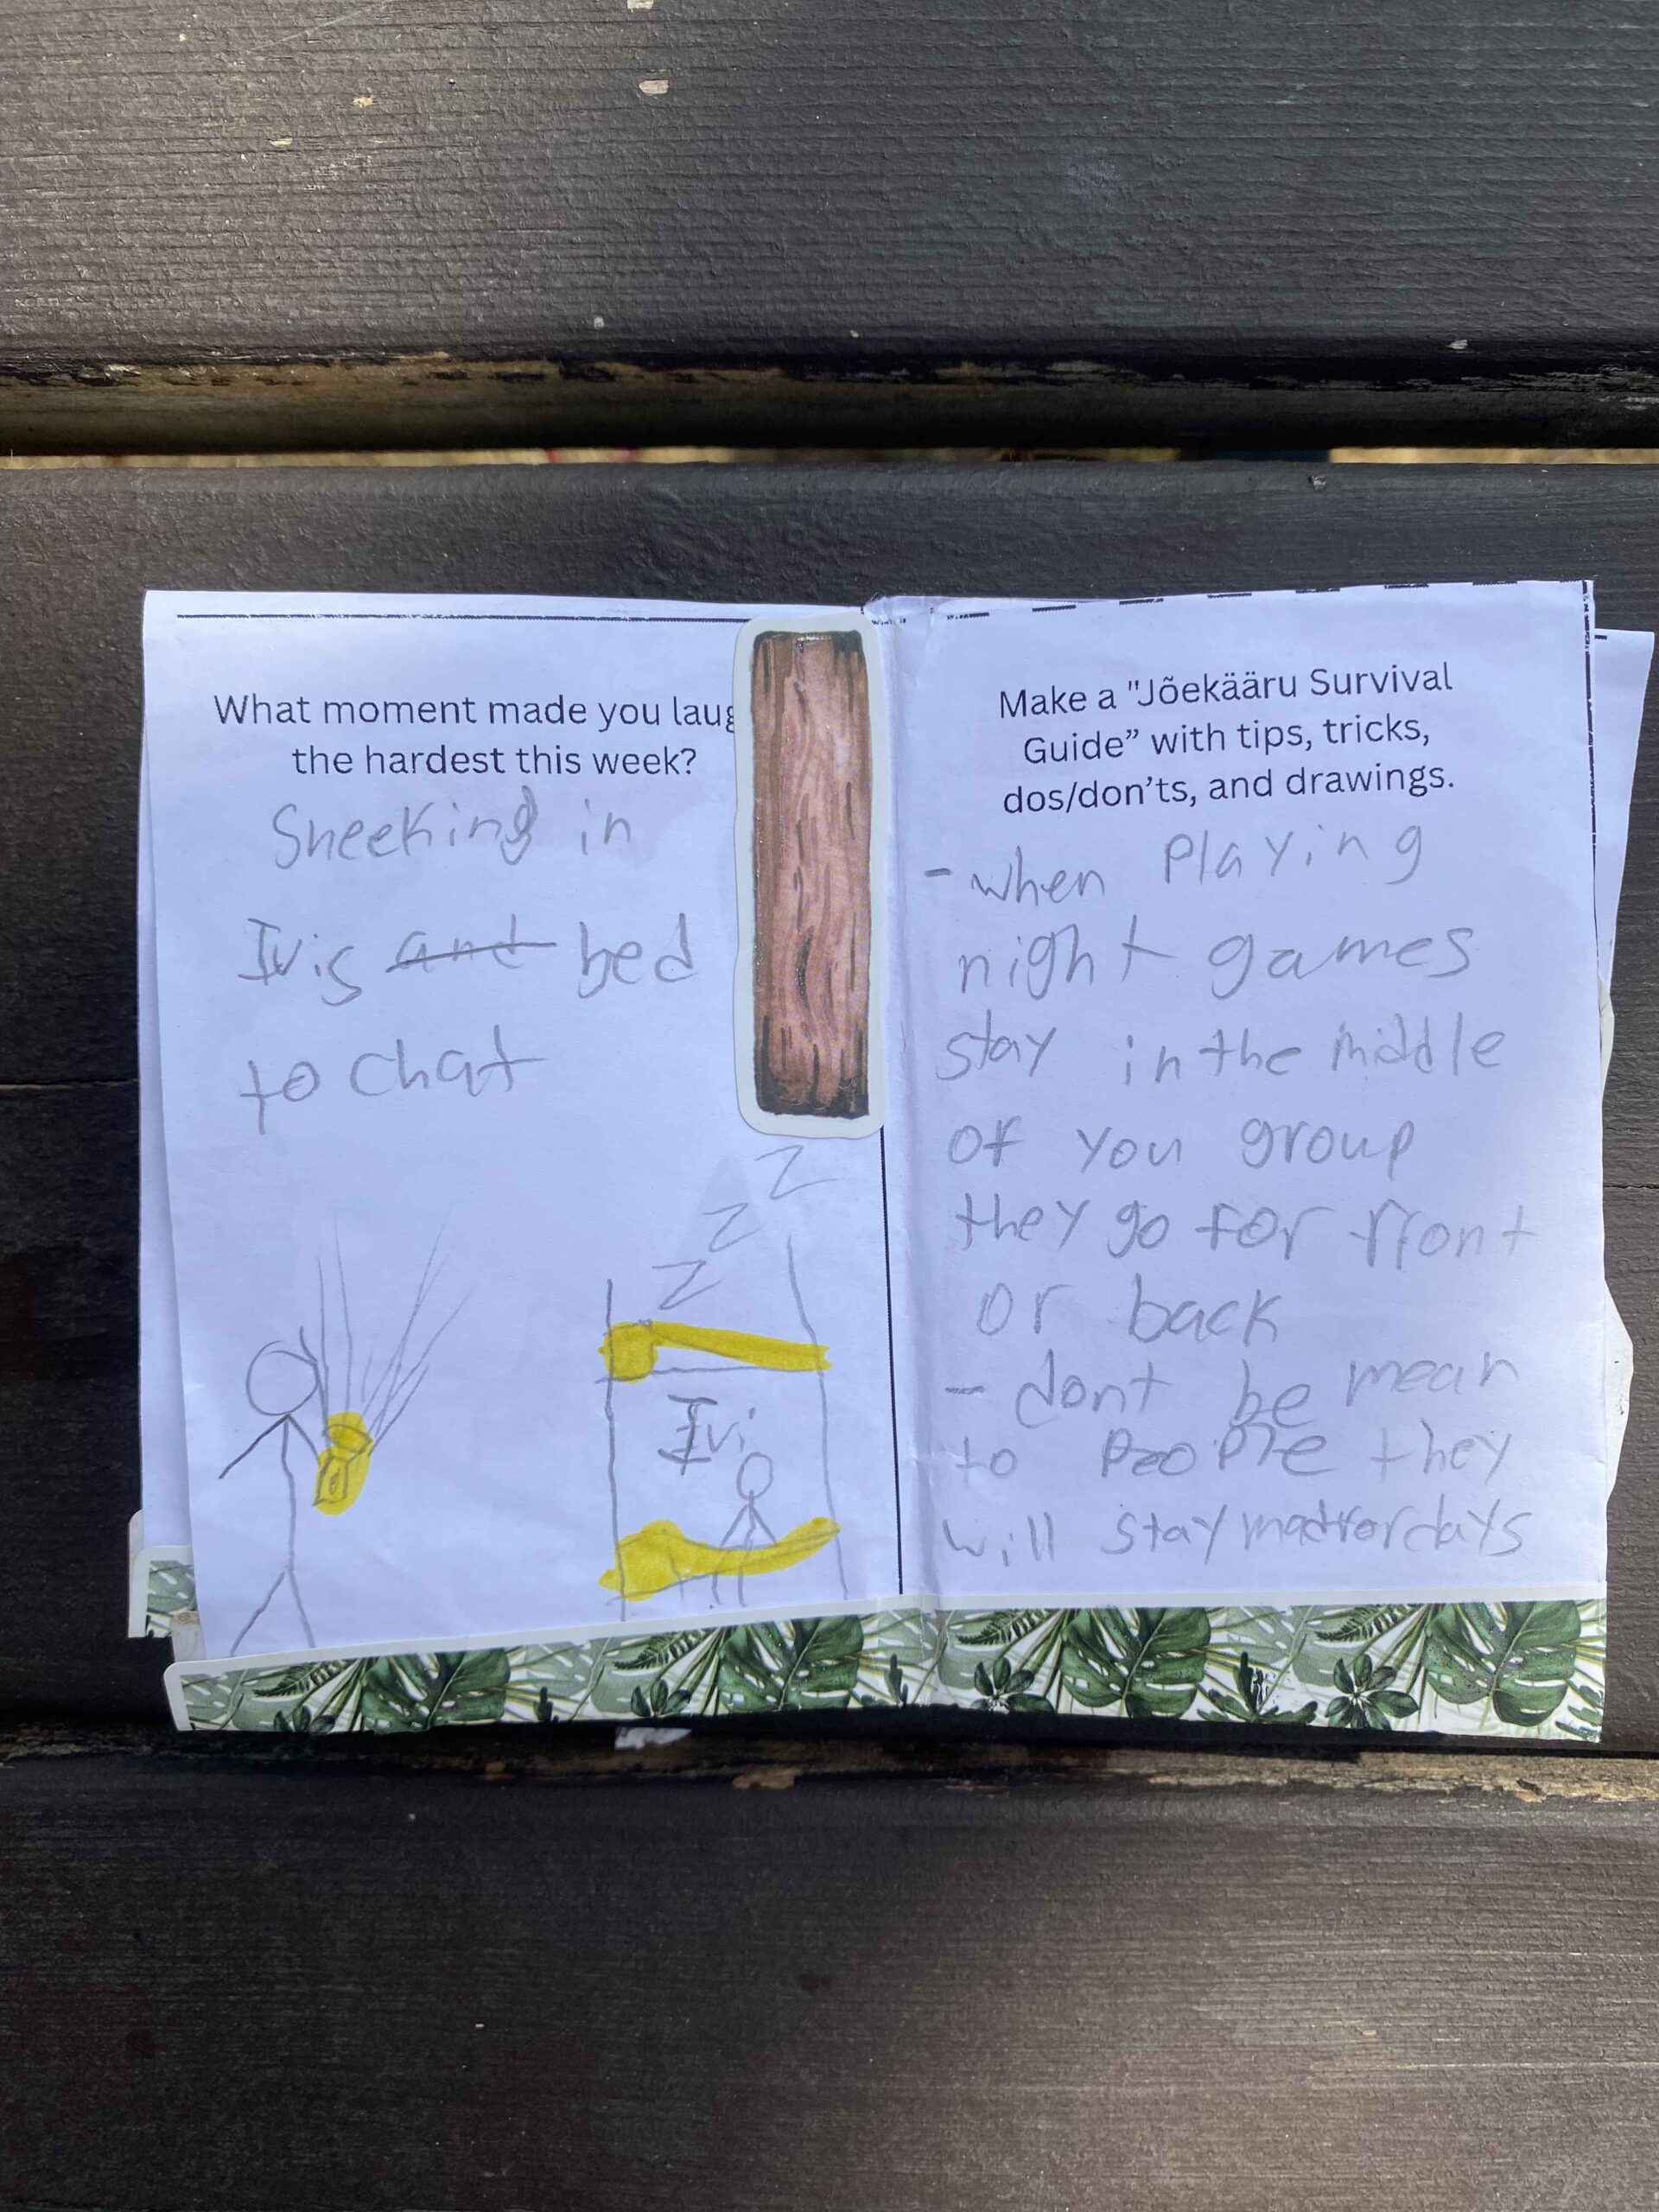 What moment made you laug
the hardest this week?
Sneeking in
Ivis and bed
to chat
Z
Z
Z
Ivi
Make a "Jõekääru Survival
Guide” with tips, tricks,
dos/don’ts, and drawings.
- when Playing
night games
stay in the middle
of you group
they go for front
or back
- dont be mean
to People they
will stay mad for days